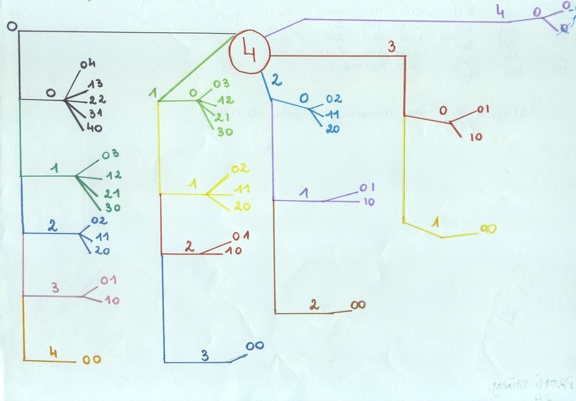 4
0
0 04
13
22
31
40
1 03
12
21
30
2 02
11
20
3 01
10
4 00
1
0 03
12
21
30
1 02
11
20
2 01
10
3 00
2
0 02
11
20
1 01
10
2 00
3
0 01
10
1 00
4
0 0